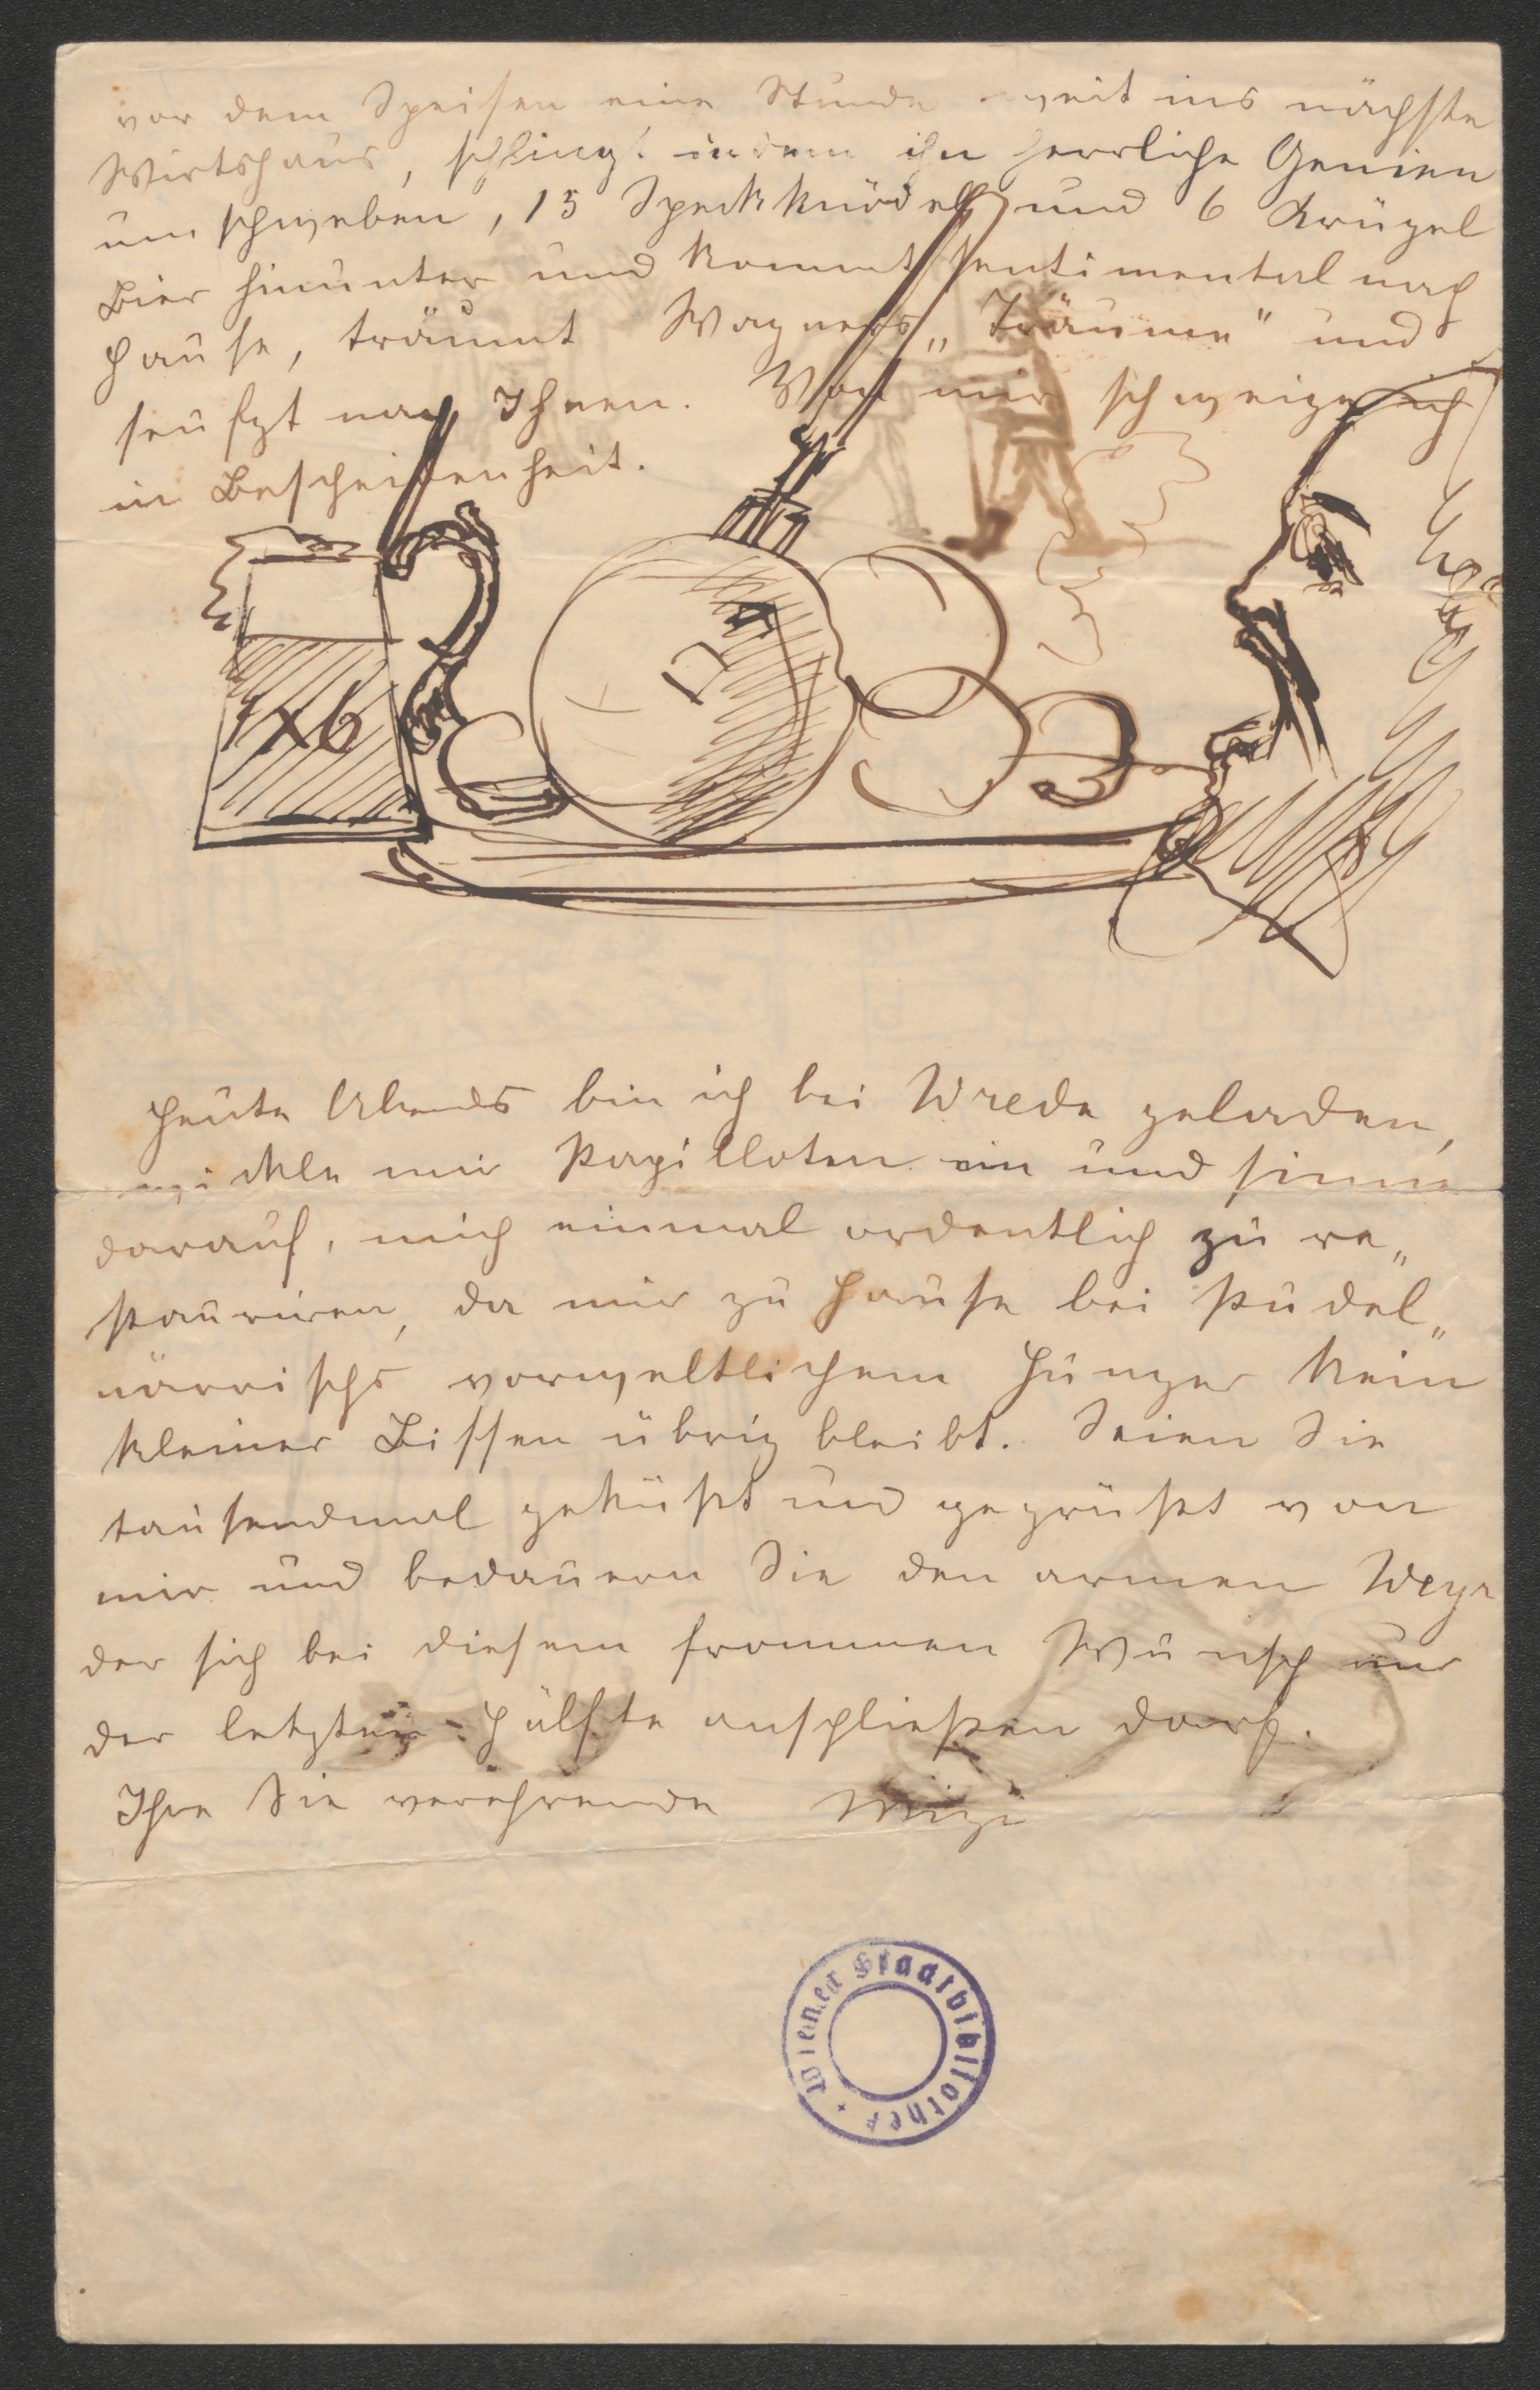 vor dem Speisen eine Stunde weit ins nächste
Wirtshaus, schlingt indem ihn herrliche Genien
umschweben, 15 Speckknödel und 6 Krügel
Bier hinunter und kommt sentimental nach
Hause, träumt Wagners „Träume" und
seufzt nach Ihnen. Von mir schweige ich
in Bescheidenheit.
1x6
15
Heute Abends bin ich bei Wrede geladen,
wickle mir Papilloten ein und sinne
darauf, mich einmal ordentlich zu re„
stauriren, da mir zu Hause bei Pudel„
närrischs vorweltlichem Hunger kein
kleiner Bissen übrig bleibt. Seien Sie
tausendmal geküßt und gegrüßt von
mir und bedauern Sie den armen Weyr
der sich bei diesem frommen Wunsch nur
der letzten Hälfte anschließen darf.
Ihre Sie verehrende Mizi
Wiener Stadtbibliothek